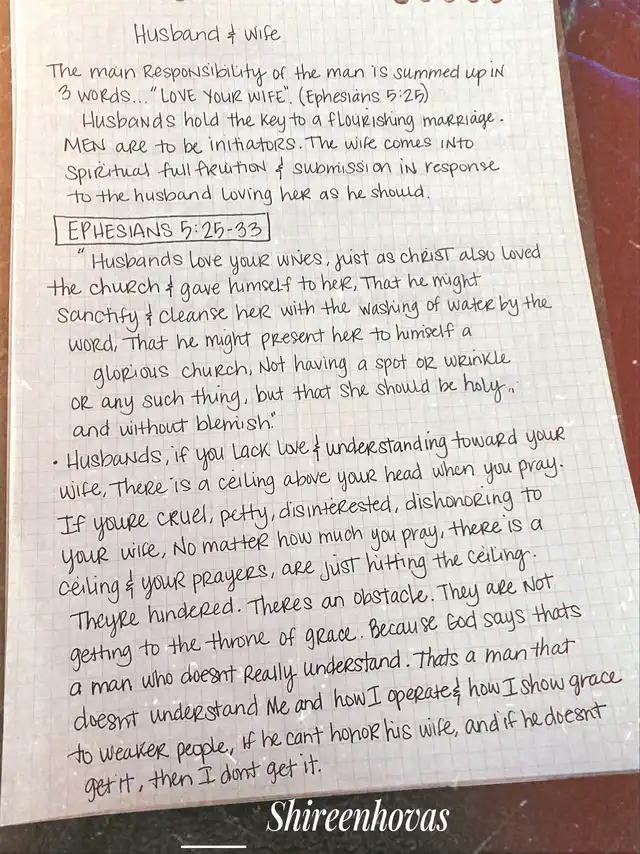 Husband & Wife
The main Responsibility of the man is summed up in
3 words... "Love your wife". (Ephesians 5:25)
Husbands hold the key to a flourishing marriage.
Men are to be initiators. The wife comes into
spiritual full fruition & submission in response
to the husband loving her as he should.
EPHESIANS 5:25-33
"Husbands love your wives, just as christ also loved
the church & gave himself to her, That he might
sanctify & cleanse her with the washing of water by the
word, That he might present her to himself a
glorious church, Not having a spot or wrinkle
or any such thing, but that she should be holy,,
and without blemish."
• Husbands, if you lack love & understanding toward your
wife, There is a ceiling above your head when you pray.
If youre cruel, petty, disinterested, dishonoring to
your wife, No matter how much you pray, there is a
ceiling & your prayers, are just hitting the ceiling.
Theyre hindered. Theres an obstacle. They are Not
getting to the throne of grace. Because God says thats
a man who doesnt Really understand. Thats a man that
doesnt understand Me and how I operate & how I show grace
to weaker people, if he cant honor his wife, and if he doesnt
get it, then I dont get it.
Shireenhovas